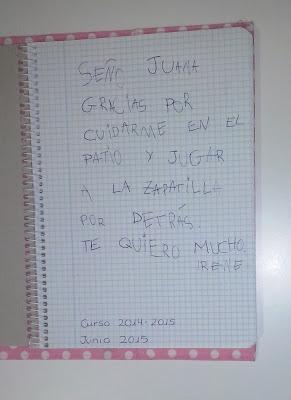 SEÑO JUANA
GRACIAS POR
CUIDARME EN EL
PATIO Y JUGAR
A LA ZAPATILLA
POR DETRÁS.
TE QUIERO MUCHO.
IRENE
Curso 2014-2015
Junio 2015